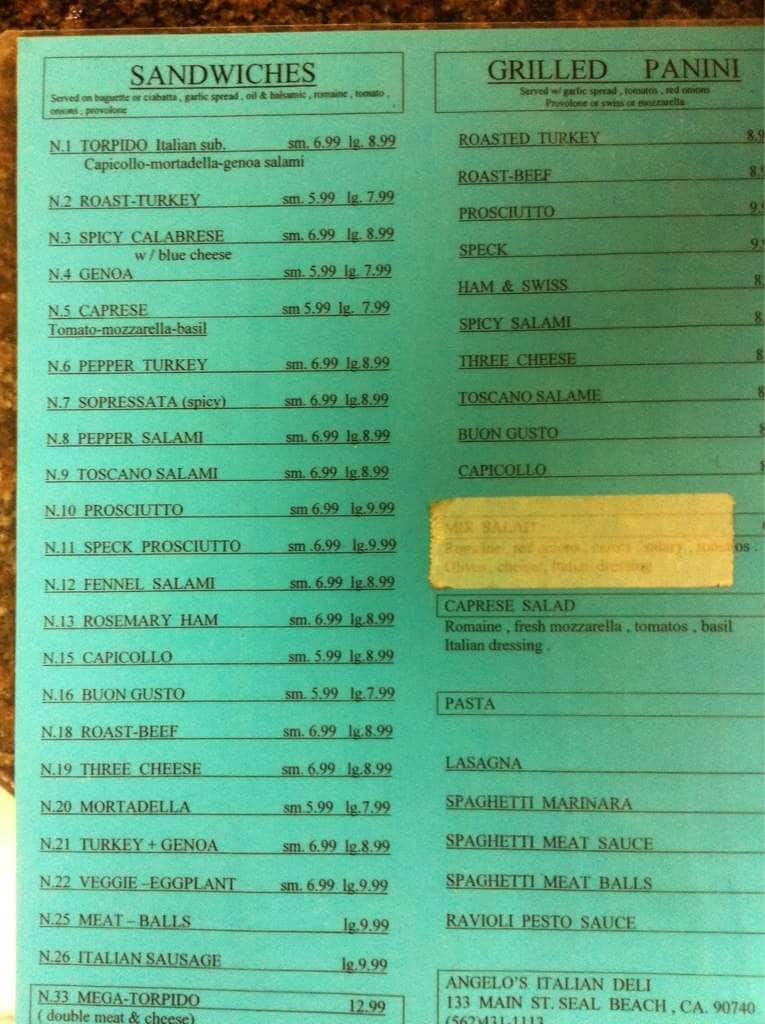 SANDWICHES
Served on baguette or ciabatta , garlic spread , oil & balsamic , romaine , tomato ,
onions , provolone
N.1 TORPIDO Italian sub. sm. 6.99 lg. 8.99
Capicollo-mortadella-genoa salami
N.2 ROAST-TURKEY sm. 5.99 lg. 7.99
N.3 SPICY CALABRESE sm. 6.99 lg. 8.99
w / blue cheese
N.4 GENOA sm. 5.99 lg. 7.99
N.5 CAPRESE sm 5.99 lg. 7.99
Tomato-mozzarella-basil
N.6 PEPPER TURKEY sm. 6.99 lg.8.99
N.7 SOPRESSATA (spicy) sm. 6.99 lg.8.99
N.8 PEPPER SALAMI sm. 6.99 lg.8.99
N.9 TOSCANO SALAMI sm. 6.99 lg.8.99
N.10 PROSCIUTTO sm 6.99 lg.9.99
N.11 SPECK PROSCIUTTO sm .6.99 lg.9.99
N.12 FENNEL SALAMI sm. 6.99 lg.8.99
N.13 ROSEMARY HAM sm. 6.99 lg.8.99
N.15 CAPICOLLO sm. 5.99 lg.8.99
N.16 BUON GUSTO sm. 5.99 lg.7.99
N.18 ROAST-BEEF sm. 6.99 lg.8.99
N.19 THREE CHEESE sm. 6.99 lg.8.99
N.20 MORTADELLA sm.5.99 lg.7.99
N.21 TURKEY + GENOA sm. 6.99 lg.8.99
N.22 VEGGIE –EGGPLANT sm. 6.99 lg.9.99
N.25 MEAT – BALLS lg.9.99
N.26 ITALIAN SAUSAGE lg.9.99
N.33 MEGA-TORPIDO 12.99
( double meat & cheese)
GRILLED PANINI
Served w/ garlic spread , tomatos , red onions
Provolone or swiss or mozzarella
ROASTED TURKEY 8.9
ROAST-BEEF 8.9
PROSCIUTTO 9.9
SPECK 9.9
HAM & SWISS 8.
SPICY SALAMI 8
THREE CHEESE 8
TOSCANO SALAME 8
BUON GUSTO 8
CAPICOLLO 8
MIX SALAD
Romaine, red onions , carrots , salary , tomatos .
Olives , cheese, Italian dressing
CAPRESE SALAD
Romaine , fresh mozzarella , tomatos , basil
Italian dressing .
PASTA
LASAGNA
SPAGHETTI MARINARA
SPAGHETTI MEAT SAUCE
SPAGHETTI MEAT BALLS
RAVIOLI PESTO SAUCE
ANGELO'S ITALIAN DELI
133 MAIN ST. SEAL BEACH , CA. 90740
(562)431-1113